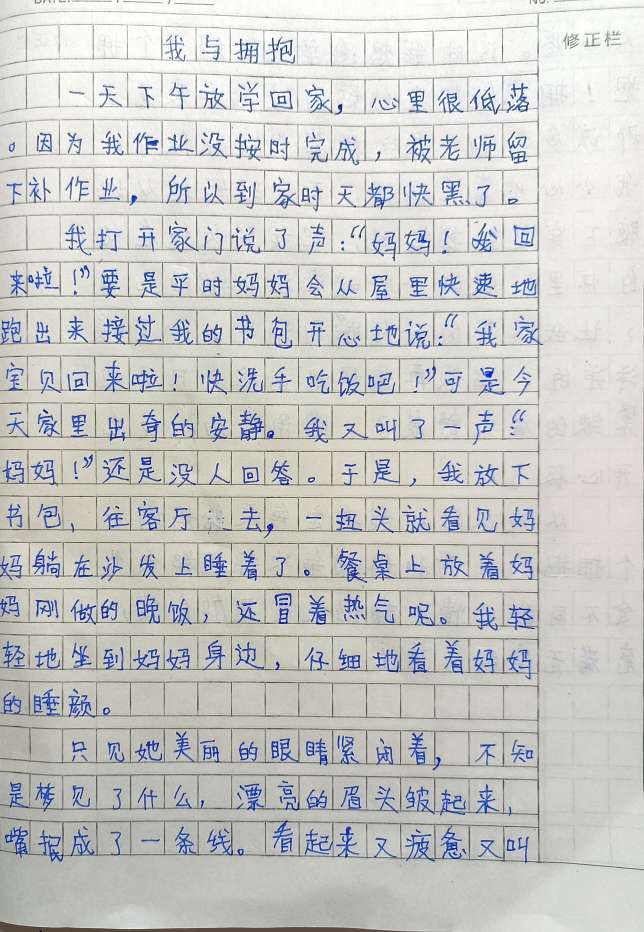 修正栏
我与拥抱
一天下午放学回家，心里很低落
。因为我作业没按时完成，被老师留
下补作业，所以到家时天都快黑了。
我打开家门说了声：“妈妈！我回
来啦！”要是平时妈妈会从屋里快速地
跑出来接过我的书包开心地说：“我家
宝贝回来啦！快洗手吃饭吧！”可是今
天家里出奇的安静。我又叫了一声：“
妈妈！”还是没人回答。于是，我放下
书包，往客厅去，一扭头就看见妈
妈躺在沙发上睡着了。餐桌上放着妈
妈刚做的晚饭，还冒着热气呢。我轻
轻地坐到妈妈身边，仔细地看着妈妈
的睡颜。
只见她美丽的眼睛紧闭着，不知
是梦见了什么，漂亮的眉头皱起来，
嘴抿成了一条线。看起来又疲惫又叫